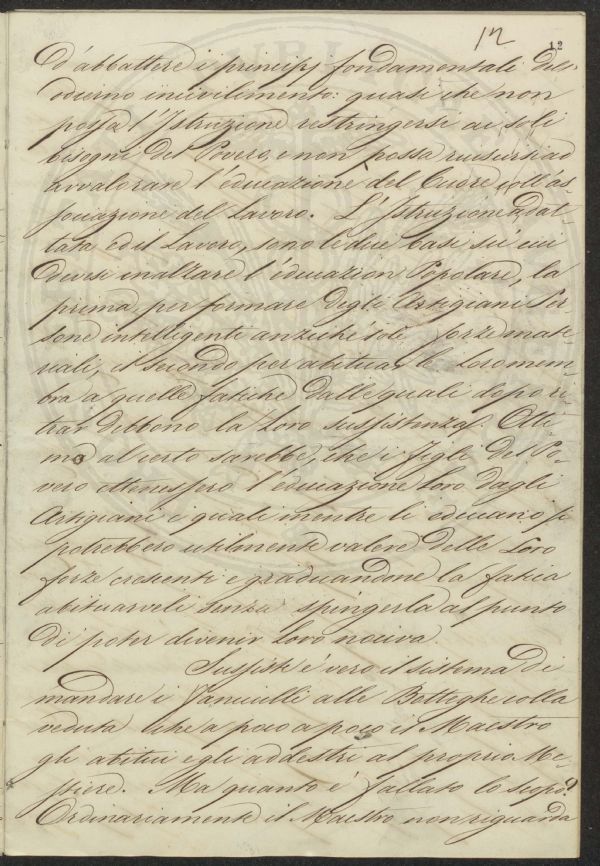 12 12
Ed'abbattere i principj fondamentali dell'
odierno incivilimento: quasi che non
possa l'Istruzione restringersi ai soli
bisogni del Povero, e non possa riuscirsi ad
avvalorare l'educazione del Cuore coll'as-
sociazione del Lavoro. L'Istruzione adat-
tata ed il Lavoro, sono le due basi su cui
devesi inalzare l'educazion Popolare, la
prima, per formare degli Artigiani Per-
sone intelligenti anziché soli forze mate-
riali, il secondo per abituar le loro mem-
bra a quelle fatiche dalle quali dopo ri-
trar debbono la loro sussistenza. Otti-
mo al certo sarebbe, che i figli del Po-
vero ottenessero l'educazione loro dagli
Artigiani i quali mentre li educano si
potrebbero utilmente valere delle loro
forze crescenti e graduandone la fatica
abituarveli senza spingerla al punto
di poter divenir loro nociva.
Sussiste è vero il sistema di
mandare i Fanciulli alle Botteghe colla
veduta che a poco a poco il Maestro
gli abitui e gli addestri al proprio Me-
stiere. Ma quanto è fallato lo scopo!
Ordinariamente il Maestro non riguarda